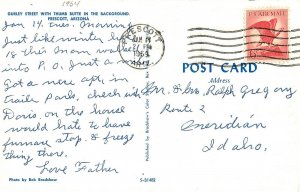 1964
GURLEY STREET WITH THUMB BUTTE IN THE BACKGROUND.
PRESCOTT, ARIZONA
Jan 14, tues. Morning
Just like winter here
18 this
into P.O. Just a
Got a nice apt. in
trailer park, check at
Doris, on the horse
would hate to have
furnace stop, & freeze
thing there.
Love Father
Photo by Bob Bradshaw
S-31412
PRESCOTT
JAN 14
PM
ARIZ.
U.S. AIR MAIL
POST CARD
Address
Mr. & Mrs. Ralph Gregory
Route 2
Meridian
Idaho.